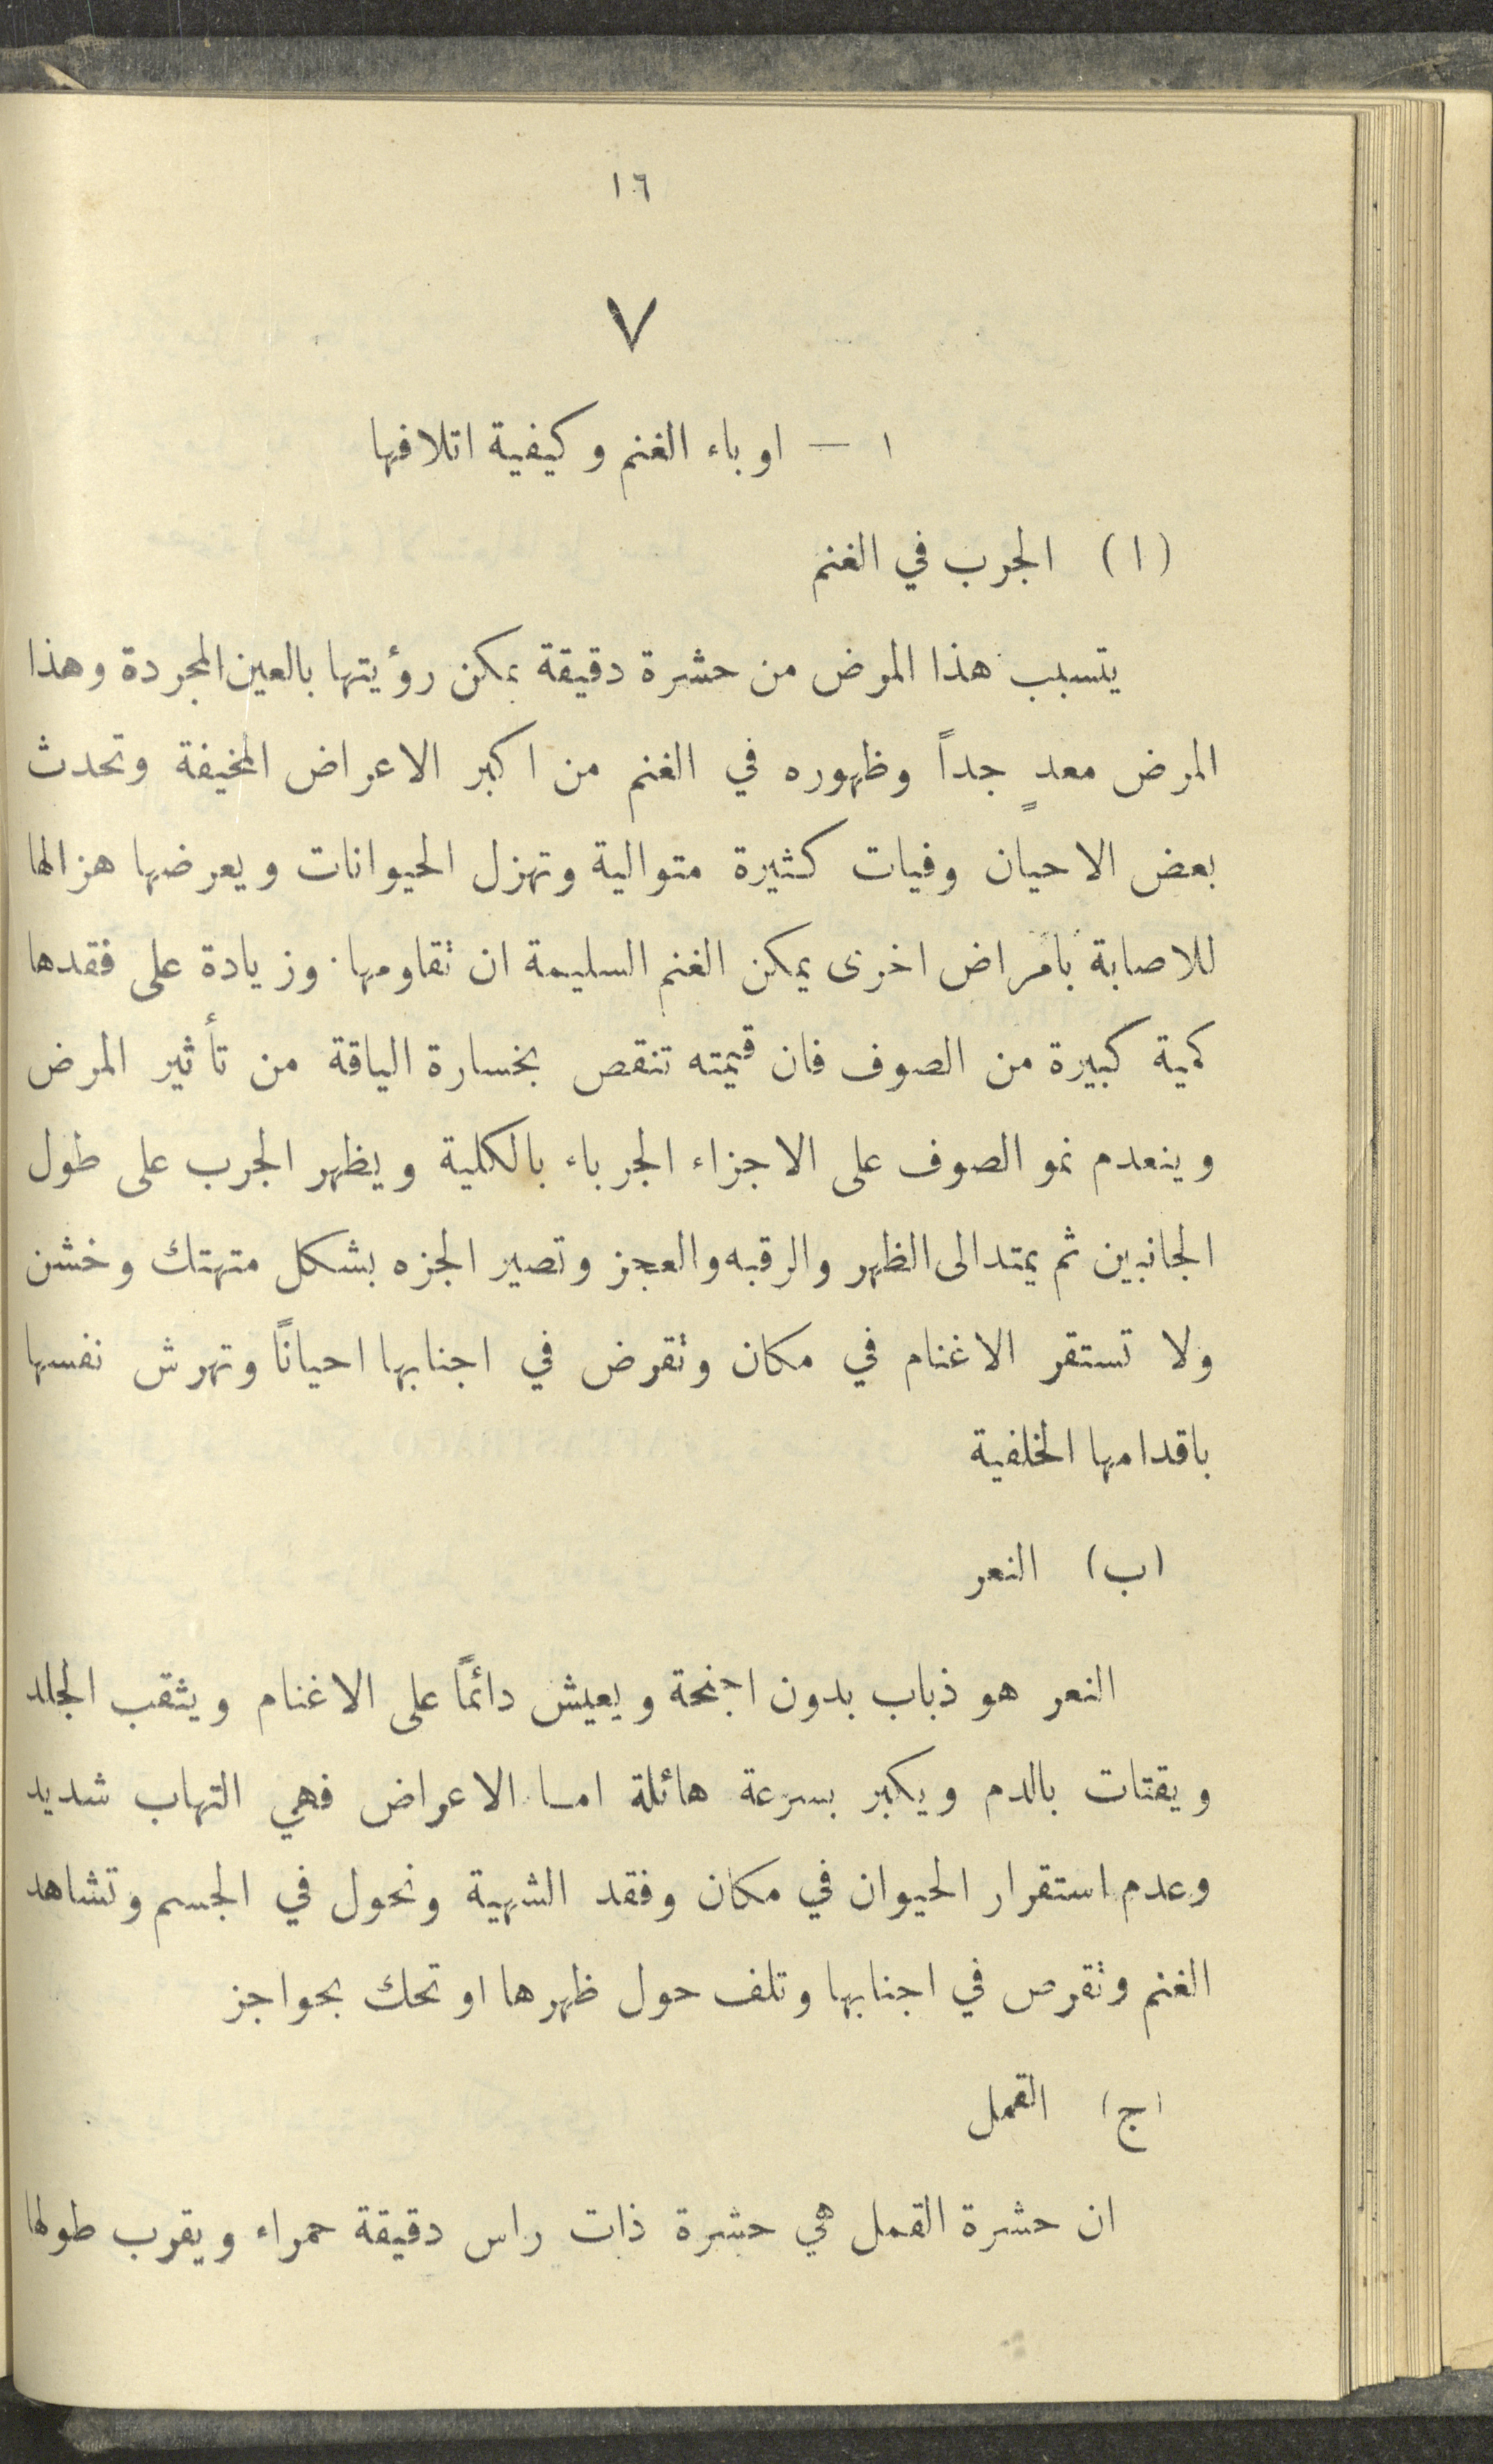 ١٦
٧
١ — اوباء الغنم وكيفية اتلافها
(ا) الجرب في الغنم
يتسبب هذا المرض من حشرة دقيقة يمكن رؤيتها بالعين المجردة وهذا
المرض معدٍ جداً وظهوره في الغنم من اكبر الاعراض المخيفة وتحدث
بعض الاحيان وفيات كثيرة متوالية وتهزل الحيوانات ويعرضها هزالها
للاصابة بامراض اخرى يمكن الغنم السليمة ان تقاومها . وزيادة على فقدها
كمية كبيرة من الصوف فان قيمته تنقص بخسارة الياقة من تأثير المرض
وينعدم نمو الصوف على الاجزاء الجرباء بالكلية ويظهر الجرب على طول
الجانبين ثم يمتد الى الظهر والرقبه والعجز وتصير الجزه بشكل متهتك وخشن
ولا تستقر الاغنام في مكان وتقرض في اجنابها احياناً وتهرش نفسها
باقدامها الخلفية
(ب) النعر
النعر هو ذباب بدون اجنحة ويعيش دائماً على الاغنام ويثقب الجلد
ويقتات بالدم ويكبر بسرعة هائلة اما الاعراض فهي التهاب شديد
وعدم استقرار الحيوان في مكان وفقد الشهية ونحول في الجسم وتشاهد
الغنم وتقرص في اجنابها وتلف حول ظهرها او تحك بحواجز
(ج) القمل
ان حشرة القمل هي حشرة ذات راس دقيقة حمراء ويقرب طولها